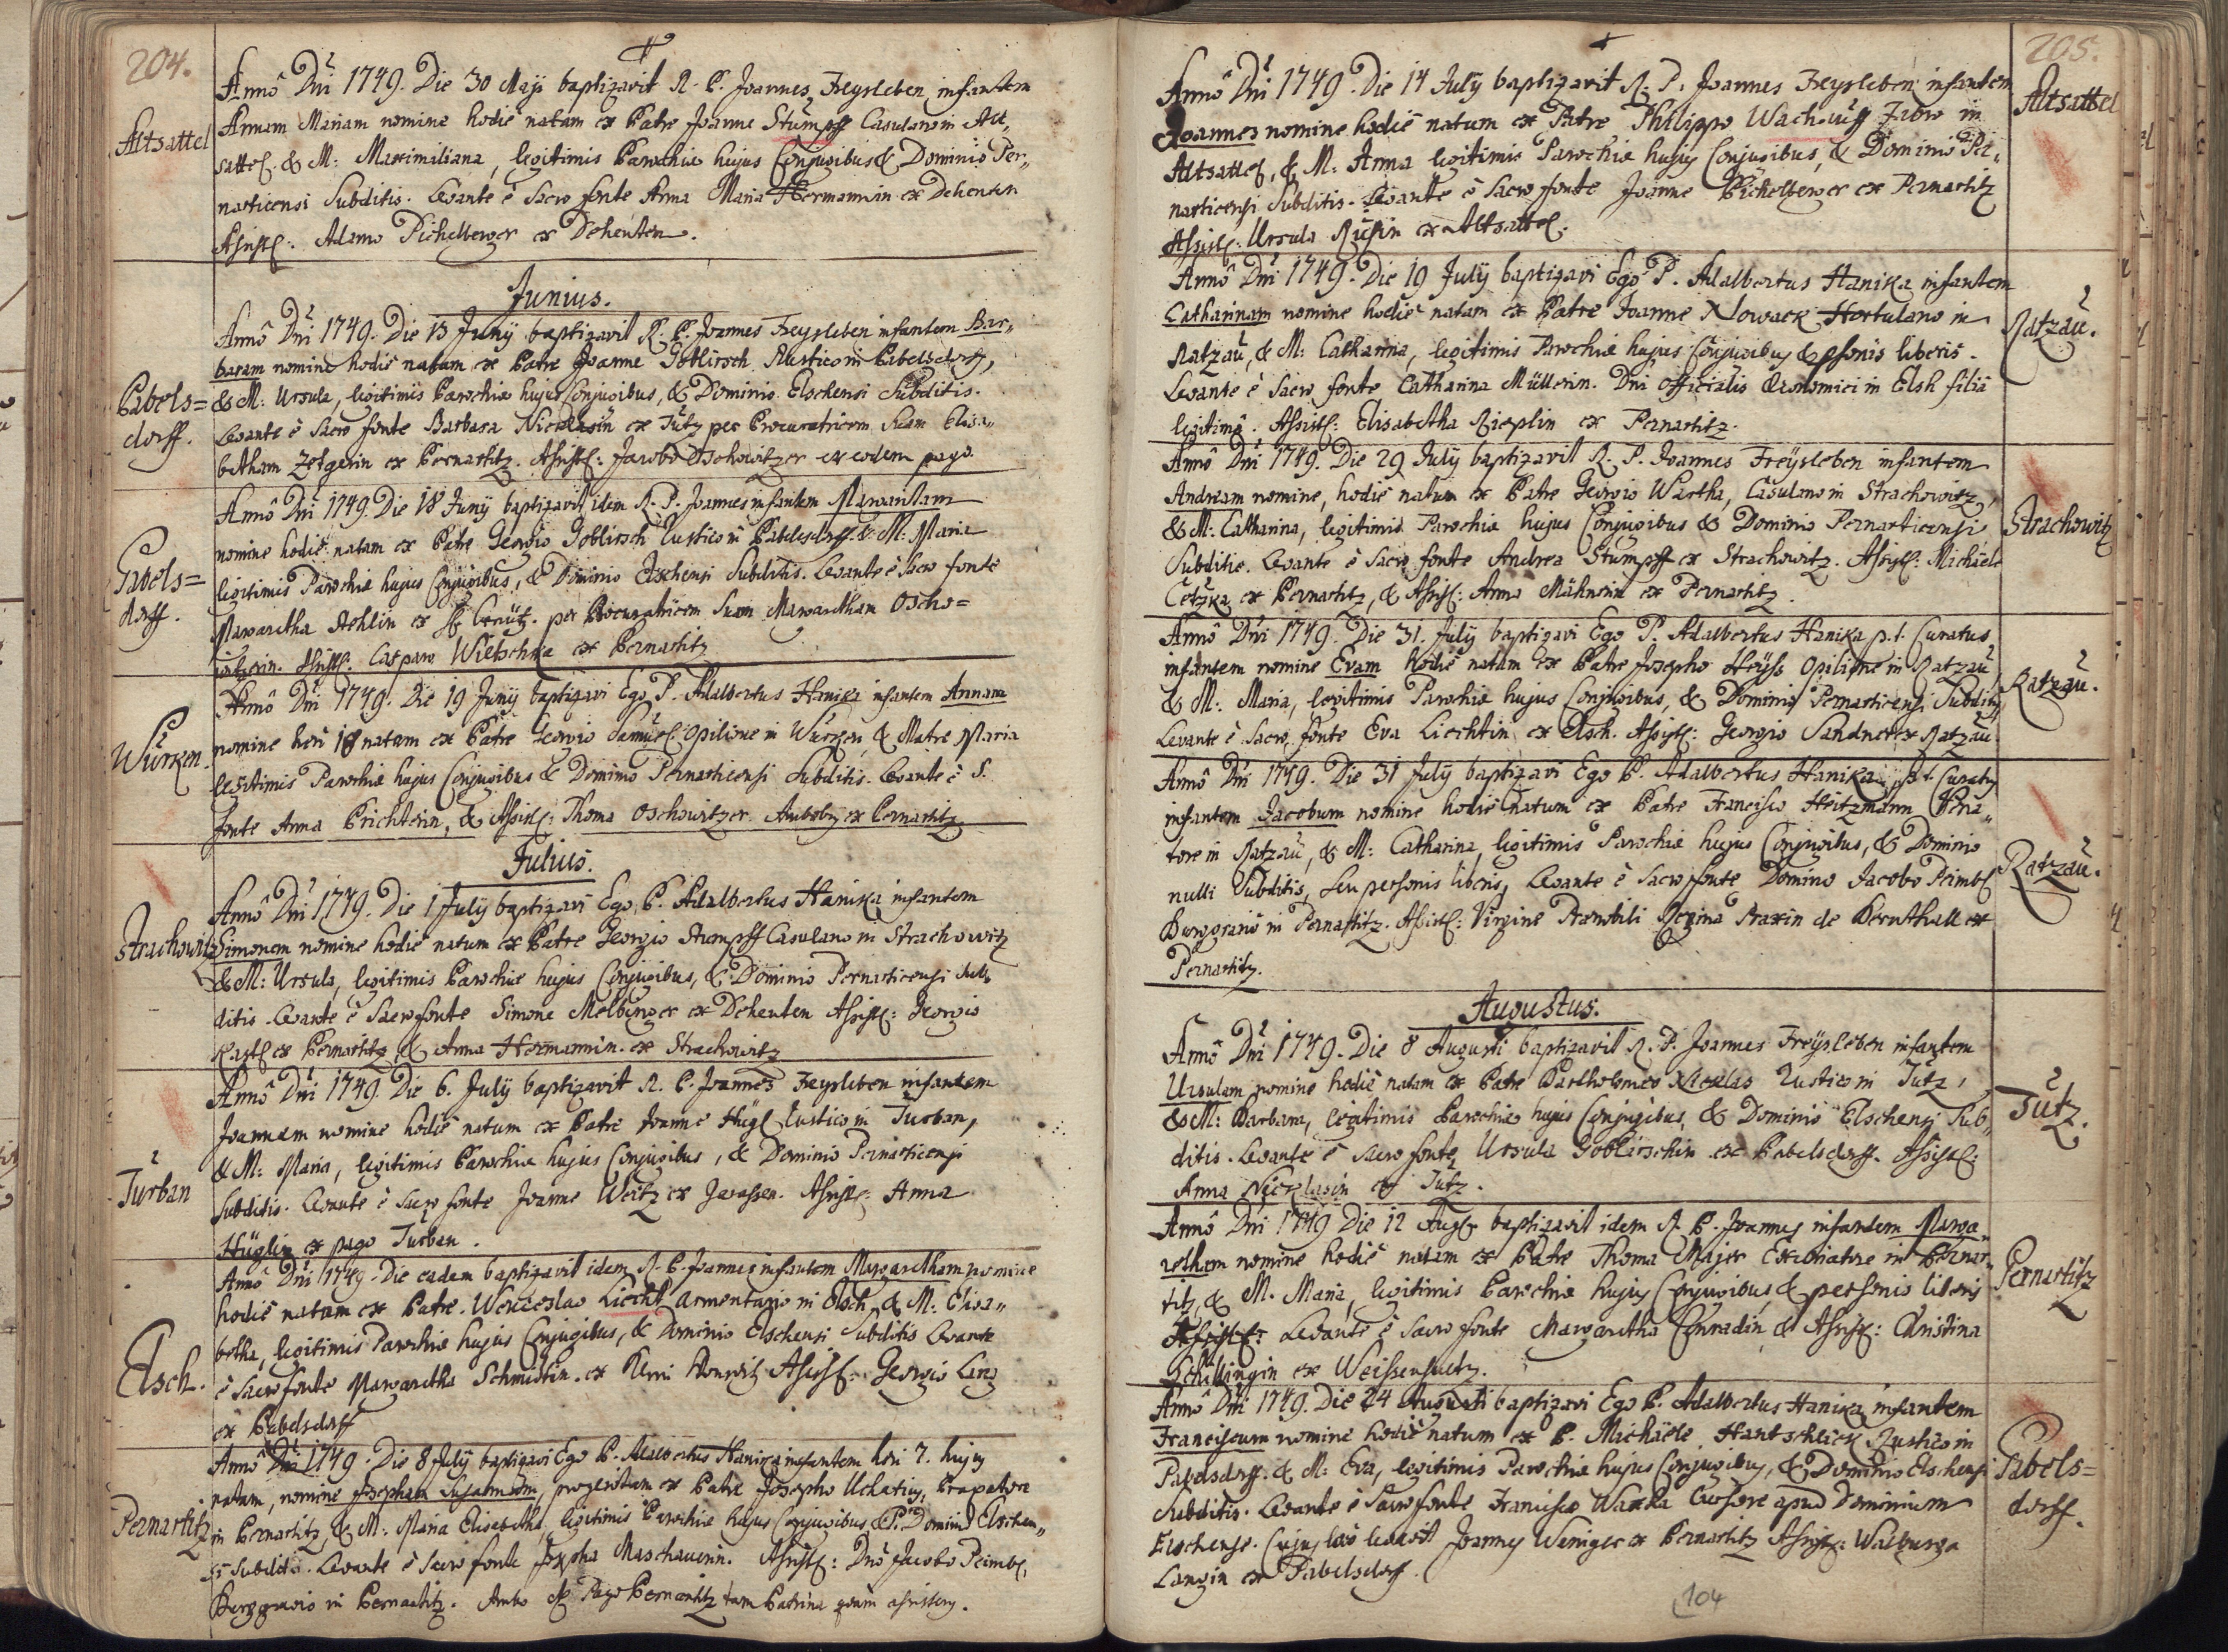 204.
Annô Dni 1749. Die 30 Maji baptizavit R. P. Joannes Freysleben infantem
Altsattel
Annam Mariam nomine hodie natam ex Patre Joanne Stumpff Casulano in Alt„
sattel. & M: Maximiliana, legitimis Parochiæ hujus Conjugibus & Dominio Per„
narticensi Subditis. Levante è Sacro fonte Anna Maria Hermannin ex Dehenten
Assistl: Adamo Pichelberger ex Dehenten.
Junius.
Annô Dni 1749. Die 13 Junÿ baptizavit R. P. Joannes Freysleben infantem Bar„
baram nomine hodie natam ex Patre Joanne Goblirsch Rustico in Pabelsdorff,
Pabels=
dorff.
& M: Ursula, legitimis Parochiæ hujus Conjugibus, & Dominio Elschensi Subditis.
Levante è Sacro fonte Barbara Nicklasin ex Tutz per Procuratricem suam Elisa„
betham Zetgerin ex Pernartitz. Assistl: Jacobo Oschowitzer ex eodem pago.
Annô Dni 1749. Die 18 Junÿ baptizavit idem R. P. Joannes infantem Margaritam
nomine hodie natam ex Patre Georgio Goblirsch Rustico in Pabelsdorff & M: Maria
Pabels=
dorff.
legitimis Parochiæ hujus Conjugibus, & Dominio Elschensi Subditis. Levante è Sacro fonte
Margaretha per Procuratricem suam Margaretham Oscho=
witzerin. Assistl. Casparo Wietschka ex Pernartitz
Annô Dni 1749. Die 19 Junÿ baptizavi Ego P. Adalbertus Hanika infantem Annam
Würken.
nomine heri 18 natam ex Patre Georgio Samuel Opilione in Würken, & Matre Maria
legitimis Parochiæ hujus Conjugibus & Dominio Pernarticensi Subditis. Levante è S.
fonte Anna Prichterin, & Assistl: Thoma Oschowitzer. Ambobus ex Pernartitz
Julius.
Annô Dni 1749. Die 1 Julÿ baptizavi Ego P. Adalbertus Hanika infantem
Strachowitz
Simonem nomine hodie natum ex Patre Georgio Stumpff Casulano in Strachowitz
& M: Ursula, legitimis Parochiæ hujus Conjugibus, & Dominio Pernarticensi Sub„
ditis. Levante è Sacro fonte Simone Melberger ex Dehenten Assistl: Georgio
Kastl ex Pernartitz & Anna Hermannin ex Strachowitz
Annô Dni 1749. Die 6. Julÿ baptizavit R. P. Joannes Freysleben infantem
Joannem nomine hodie natum ex Patre Joanne Hügl Rustico in Turban,
Turban
& M: Maria, legitimis Parochiæ hujus Conjugibus, & Dominio Pernarticensi
Subditis. Levante è Sacro fonte Joanne Weitz ex Assistl: Anna
Hüglin ex pago Turban.
Annô Dni 1749. Die eadem baptizavit idem R. P. Joannes infantem Margaretham nomine
hodie natam ex Patre Wenceslao Liecht Armentario in Elsch, & M: Elisa„
Elsch.
betha, legitimis Parochiæ hujus Conjugibus, & Dominio Elschensi Subditis Levante
è Sacro fonte Margaretha Schmidtin ex Assistl: Georgio Lang
ex Pabelsdorff
Annô Dni 1749. Die 8 Julÿ baptizavi Ego P. Adalbertus Hanika infantem heri 7. hujus
natam, nomine Josepham progenitam ex Patre Josepho Ucharius,
Pernartitz
in Pernartitz, & M: Maria Elisabetha, legitimis Parochiæ hujus Conjugibus, & Dominio Elschen„
si Subditis. Levante è Sacro fonte Josepha Maschauerin. Assistl: Dnô Jacobo Peimbl,
Burggravio in Pernartitz. Ambo ex Pago Pernartitz tam Patrina quàm assistens.
205.
Annô Dni 1749. Die 14 Julÿ baptizavit R. P. Joannes Freysleben infantem
Altsattel
Joannes nomine hodie natum ex Patre Philippo Wachouss Fabro in
Altsattel, & M: Anna legitimis Parochiæ hujus Conjugibus, & Dominio Per„
narticensi Subditis. Levante è Sacro fonte Joanne Pichelberger ex Pernartitz
Assistl: Ursula Russin ex Altsattel.
Annô Dni 1749. Die 19 Julÿ baptizavi Ego P. Adalbertus Hanika infantem
Catharinam nomine hodie natam ex Patre Joanne Nowack Hortulano in
Ratzau.
Ratzau, & M: Catharina, legitimis Parochiæ hujus Conjugibus & psonis liberis.
Levante è Sacro fonte Catharina Müllerin. Dni Officialis Œconomici in Elsh filia
legitima. Assistl: Elisabetha Rieplin ex Pernartitz.
Annô Dni 1749. Die 29 Julÿ baptizavit R. P. Joannes Freÿsleben infantem
Andream nomine, hodie natum ex Patre Georgio Wartha, Casulano in Strachowitz,
Strachowitz
& M: Catharina, legitimis Parochiæ hujus Conjugibus & Dominio Pernarticensi
Subditis. Levante è Sacro fonte Andrea Stumpff ex Strachowitz. Assistl: Michaele
Cetzka ex Pernartitz, & Assistl: Anna Mähnerin ex Pernartitz.
Annô Dni 1749. Die 31. Julÿ baptizavi Ego P. Adalbertus Hanika p.t. Curatus
infantem nomine Evam hodie natam ex Patre Josepho Heÿss Opilione in Ratzau
Ratzau.
& M: Maria, legitimis Parochiæ hujus Conjugibus, & Dominio Pernarticensi Subditis
Levante è Sacro fonte Eva Liechtin ex Elsh. Assistl: Georgio Sandner ex Ratzau
Annô Dni 1749. Die 31 Julÿ baptizavi Ego P. Adalbertus Hanika p.t. Curatus
infantem Jacobum nomine hodie natum ex Patre Francisco Heitzmann Vena„
tore in Ratzau, & M: Catharina, legitimis Parochiæ hujus Conjugibus, & Dominio
Ratzau.
nulli Subditis, seu personis liberis, Levante è Sacro fonte Domino Jacobo Peimbl
Burggravio in Pernartitz. Assistl: Virgine Prænobili Regina Praxin de Bernthall ex
Pernartitz.
Augustus.
Annô Dni 1749. Die 8 Augusti baptizavit R. P. Joannes Freÿsleben infantem
Ursulam nomine hodie natam ex Patre Bartholomeo Nicklas Rustico in Tutz,
Tutz.
& M: Barbara, legitimis Parochiæ hujus Conjugibus, & Dominio Elschensi Sub„
ditis. Levante è Sacro fonte Ursula Goblirschin ex Pabelsdorff. Assistl:
Anna Nicklasin ex Tutz.
Annô Dni 1749 Die 12 Augs baptizavit idem R. P. Joannes infantem Marga„
retham nomine hodie natam ex Patre Thoma Majer in Pernar„
Pernartitz
titz, & M. Maria, legitimis Parochiæ hujus Conjugibus, & personis liberis
Assistl: Levante è Sacro fonte Margaretha Conradin & Assistl: Christina
Schillingin ex Weissensultz.
Annô Dni 1749. Die 24 Augusti baptizavi Ego P. Adalbertus Hanika infantem
Franciscum nomine hodie natum ex P. Michäele Hantschlick Rustico in
Pabels=
dorff.
Pabelsdorff. & M: Eva, legitimis Parochiæ hujus Conjugibus, & Dominio Elschensi
Subditis. Levante è Sacro fonte Francisco Wartha Cursore apud Dominium
Elschense. Cujus loco levavit Joannes Weniger ex Pernartitz Assistl: Walburga
Langin ex Pabelsdorff.
104